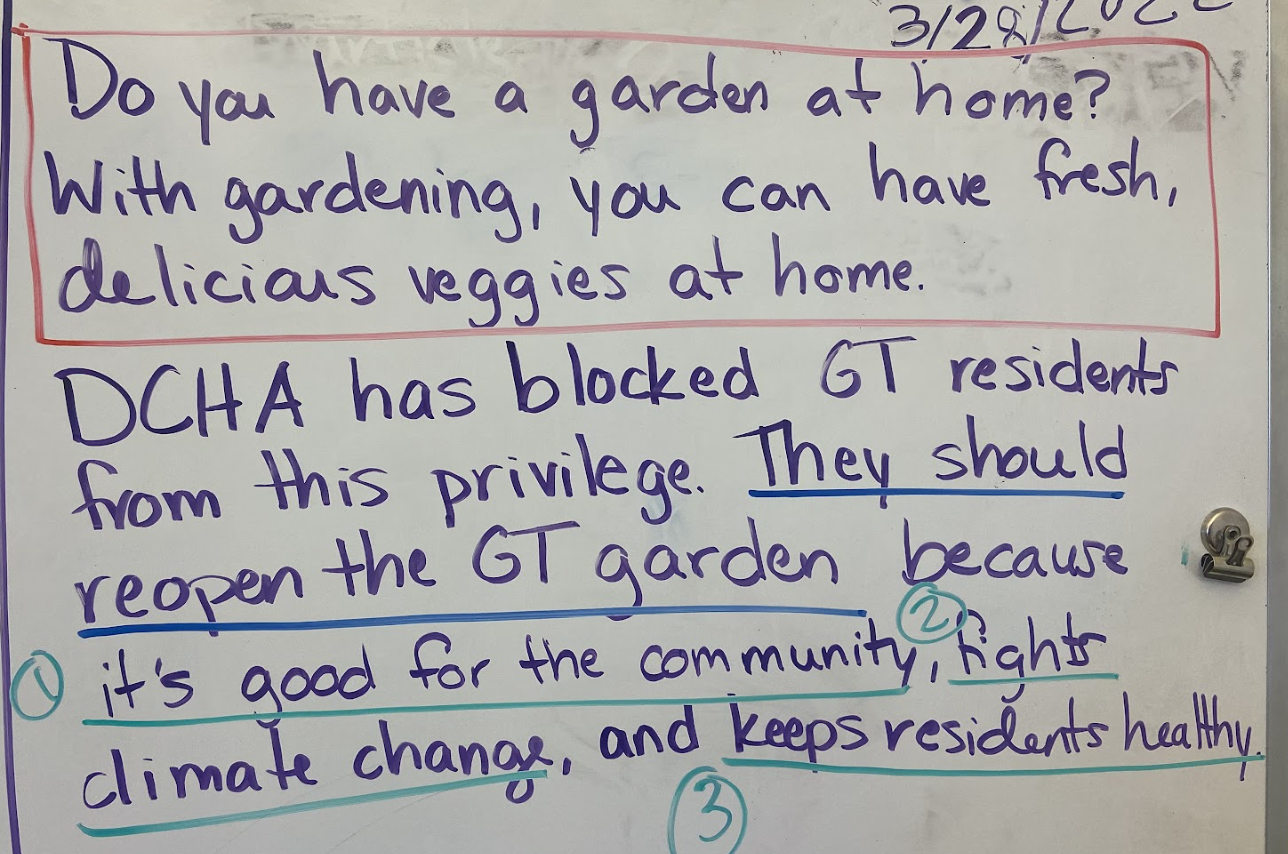 3/28/2022
Do you have a garden at home?
With gardening, you can have fresh,
delicious veggies at home.
DCHA has blocked GT residents
from this privilege. They should
reopen the GT garden because
① it's good for the community, ② fights
climate change, and keeps residents healthy.
③